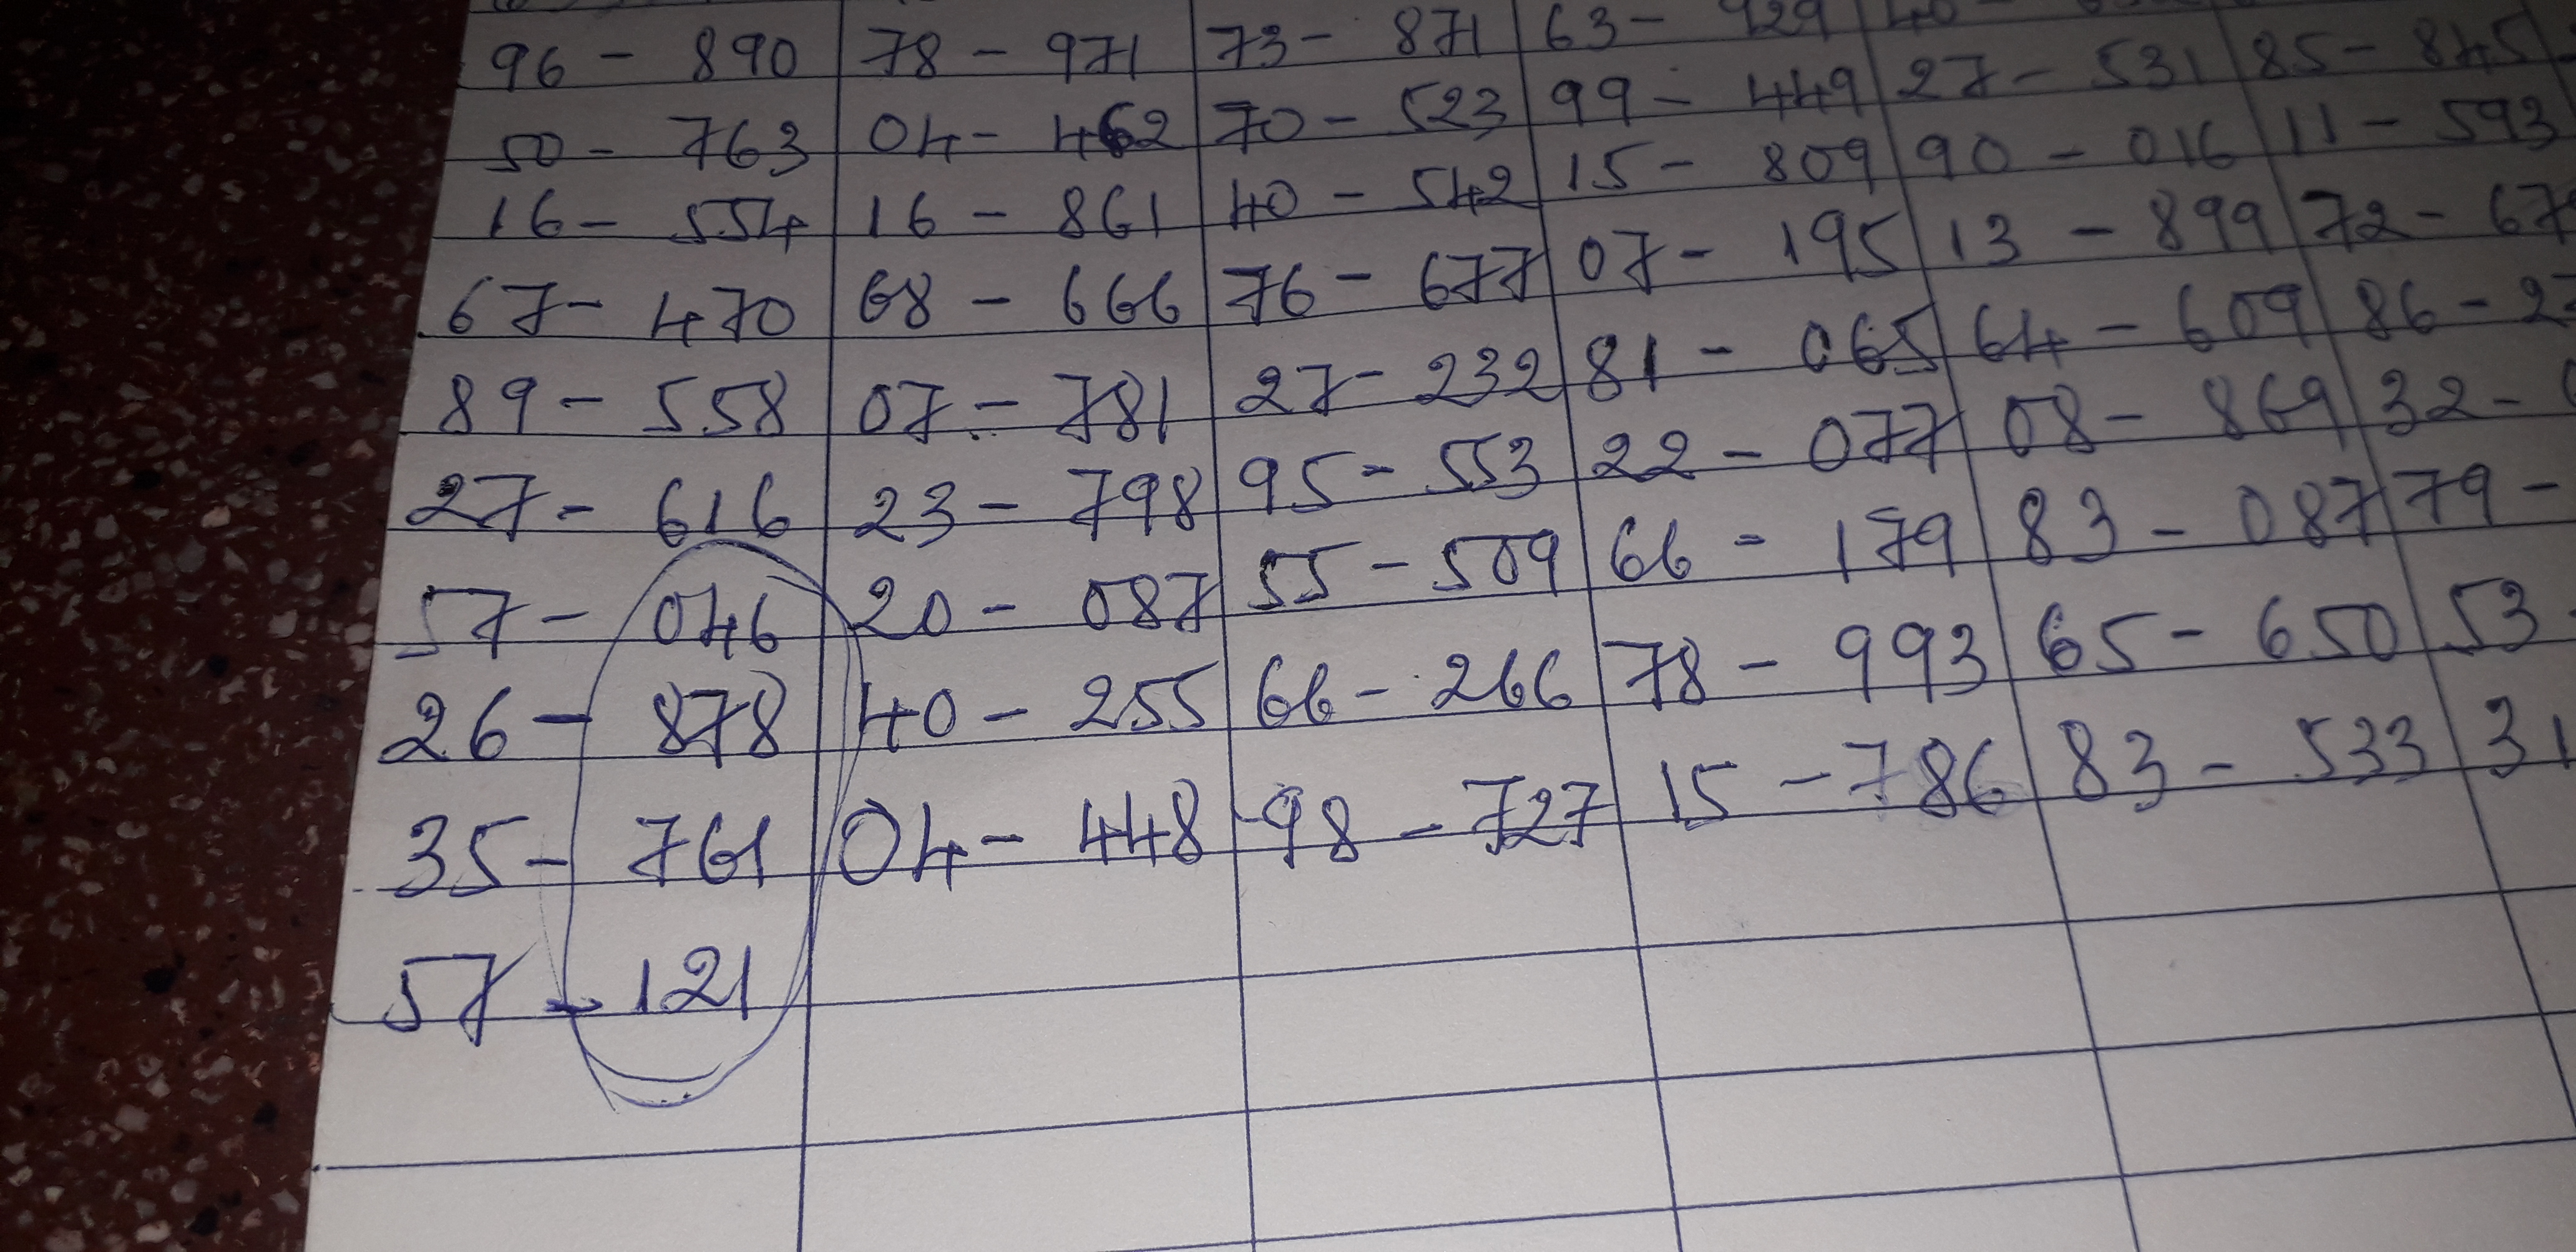 96 - 890 78 - 971 73 - 871 63 - 929 40 -
50 - 763 04 - 462 70 - 523 99 - 449 27 - 531 85 - 845
16 - 554 16 - 861 40 - 542 15 - 809 90 - 016 11 - 593
67 - 470 68 - 666 76 - 677 07 - 195 13 - 899 72 - 67
89 - 558 07 - 781 27 - 232 81 - 065 64 - 609 86 - 2
27 - 616 23 - 798 95 - 553 22 - 077 08 - 869 32 -
57 - 046 20 - 087 55 - 509 66 - 179 83 - 087 79 -
26 - 878 40 - 255 66 - 266 78 - 993 65 - 650 53
35 - 761 04 - 448 98 - 727 15 - 786 83 - 533 31
57 - 121